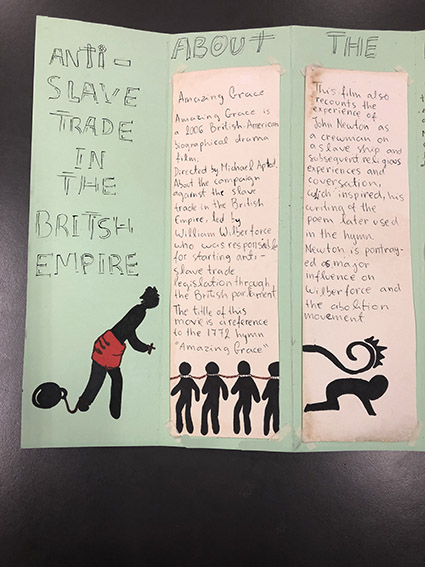 ANTI-
SLAVE
TRADE
IN
THE
BRITISH
EMPIRE
ABOUT
Amazing Grace
Amazing Grace is
a 2006 British-American
biographical drama
film.
Directed by Michael Apted.
About the campaign
against the slave
trade in the British
Empire, led by
William Wilberforce
who was responsible
for starting anti-
slave trade
legislation through
the British parliment
The title of this
move is a reference
to the 1772 hymn
"Amazing Grace"
THE
This film also
recounts the
experience of
John Newton as
a crewman on
a slave ship and
subsequent religious
experiences and
conversation,
which inspired, his
writing of the
poem later used
in the hymn.
Newton is portray-
ed as major
influence on
Wilberforce and
the abolition
movement